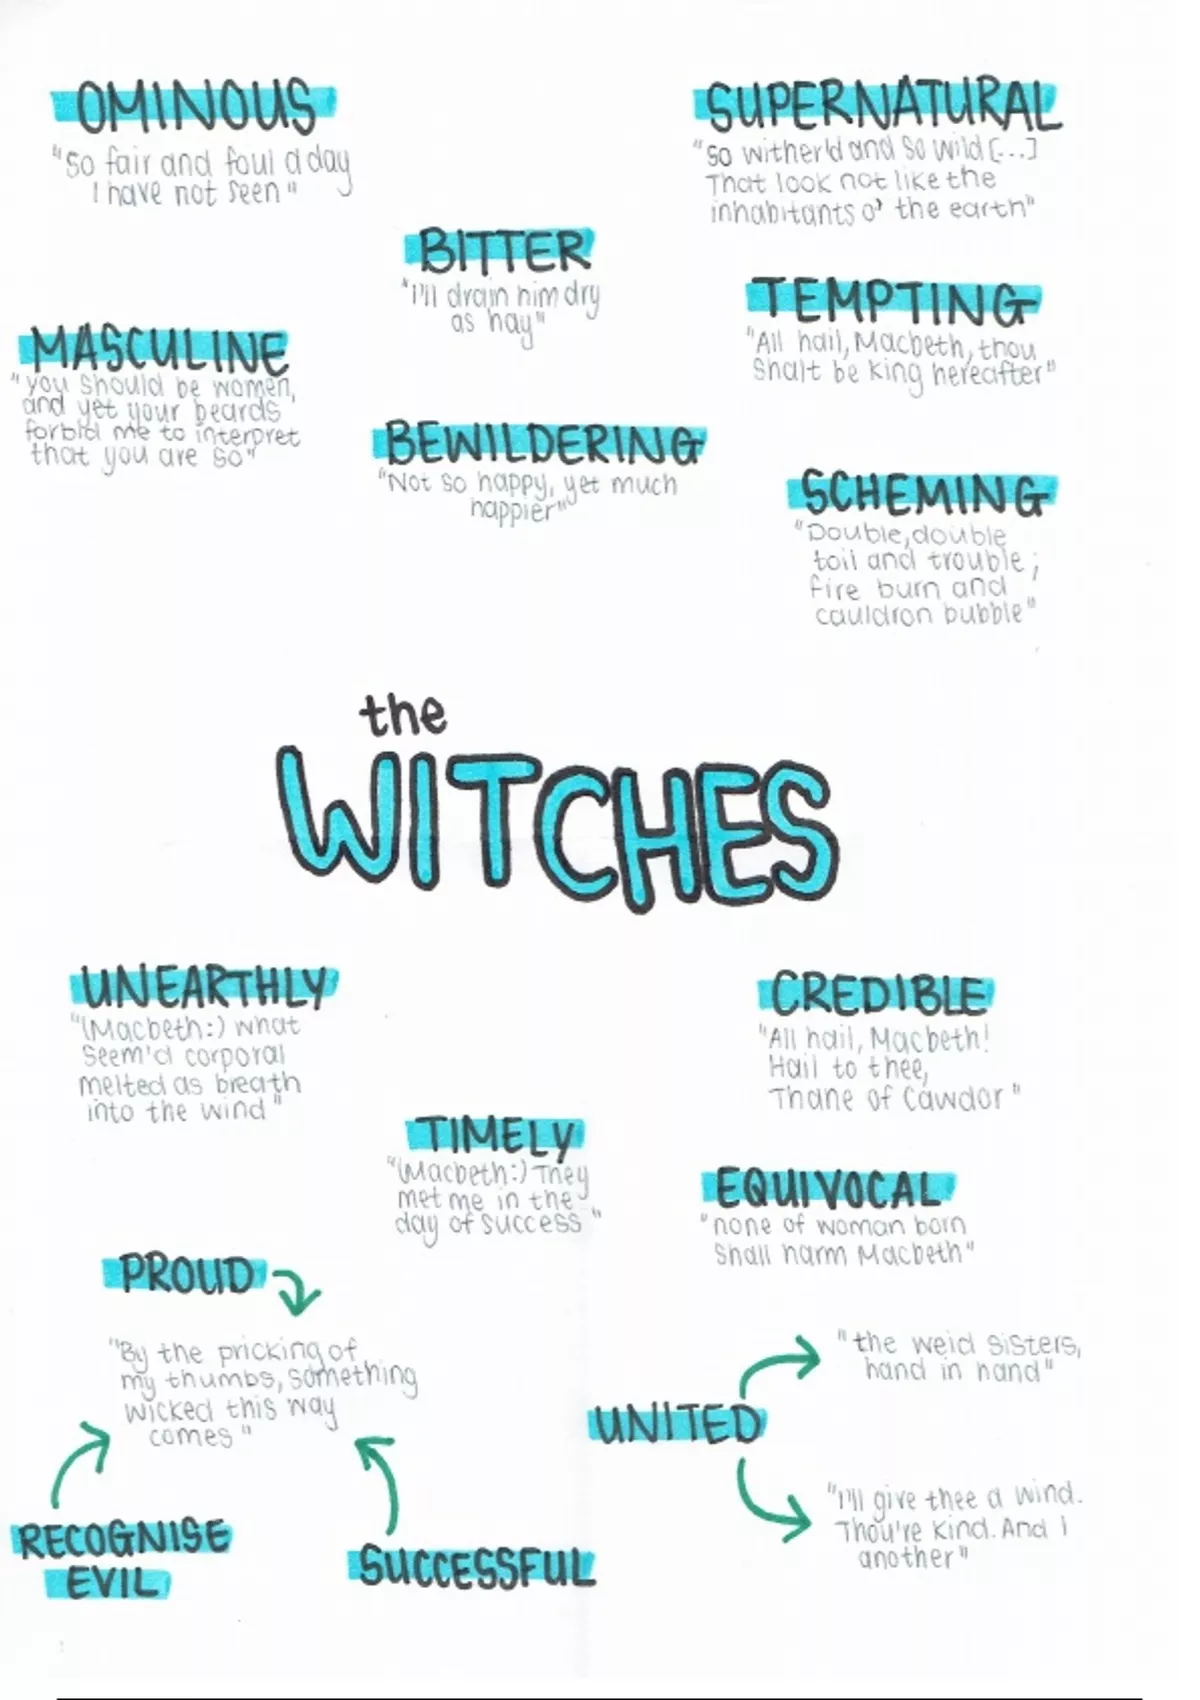 OMINOUS
"So fair and foul a day
I have not seen"
SUPERNATURAL
"So wither'd and so wild [...]
That look not like the
inhabitants o' the earth"
BITTER
"I'll drain him dry
as hay"
TEMPTING
"All hail, Macbeth, thou
Shalt be king hereafter"
MASCULINE
"you should be women,
and yet your beards
forbid me to interpret
that you are so"
BEWILDERING
"Not so happy, yet much
happier"
SCHEMING
"Double, double
toil and trouble;
fire burn and
cauldron bubble"
the
WITCHES
UNEARTHLY
"(Macbeth:) what
Seem'd corporal
melted as breath
into the wind"
CREDIBLE
"All hail, Macbeth!
Hail to thee,
Thane of Cawdor"
TIMELY
"(Macbeth:) They
met me in the
day of success"
EQUIVOCAL
"none of woman born
Shall harm Macbeth"
PROUD
"By the pricking of
my thumbs, something
wicked this way
comes"
"the weid sisters,
hand in hand"
UNITED
"I'll give thee a wind.
Thou're kind. And I
another"
RECOGNISE
EVIL
SUCCESSFUL